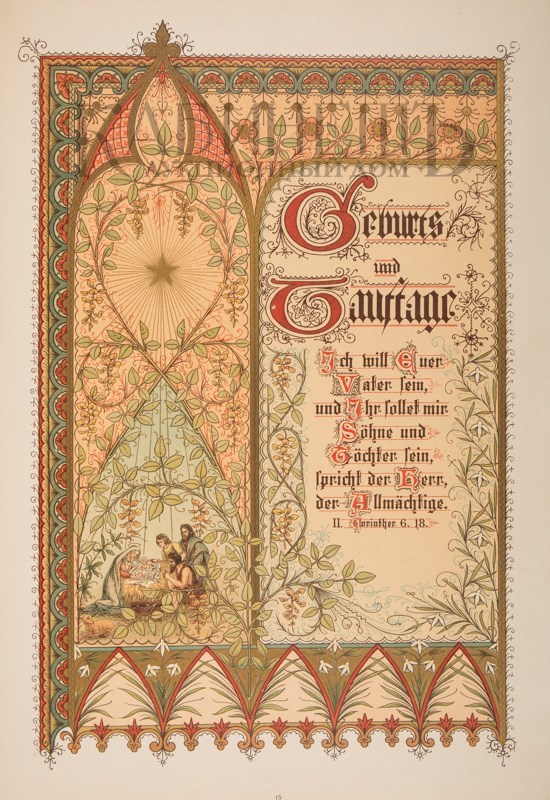 КАБИНЕТЪ
АУКЦИОННЫЙ ДОМ
Geburts
und
Tauftage
Ich will Euer
Vater sein,
und Ihr sollet mir
Söhne und
Töchter sein,
spricht der Herr,
der Allmächtige.
II. Corinther 6. 18.
15